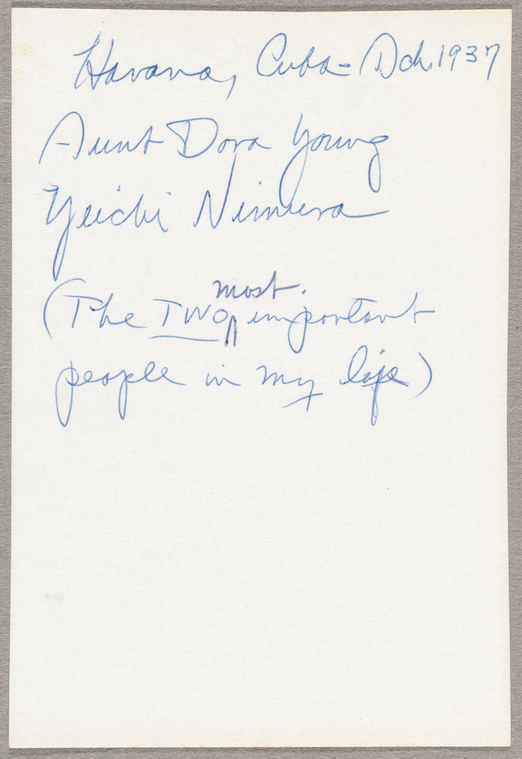 Havana, Cuba - Dch. 1937
Aunt Dora Young
Yeichi Nimura
(The TWO most important
people in my life)